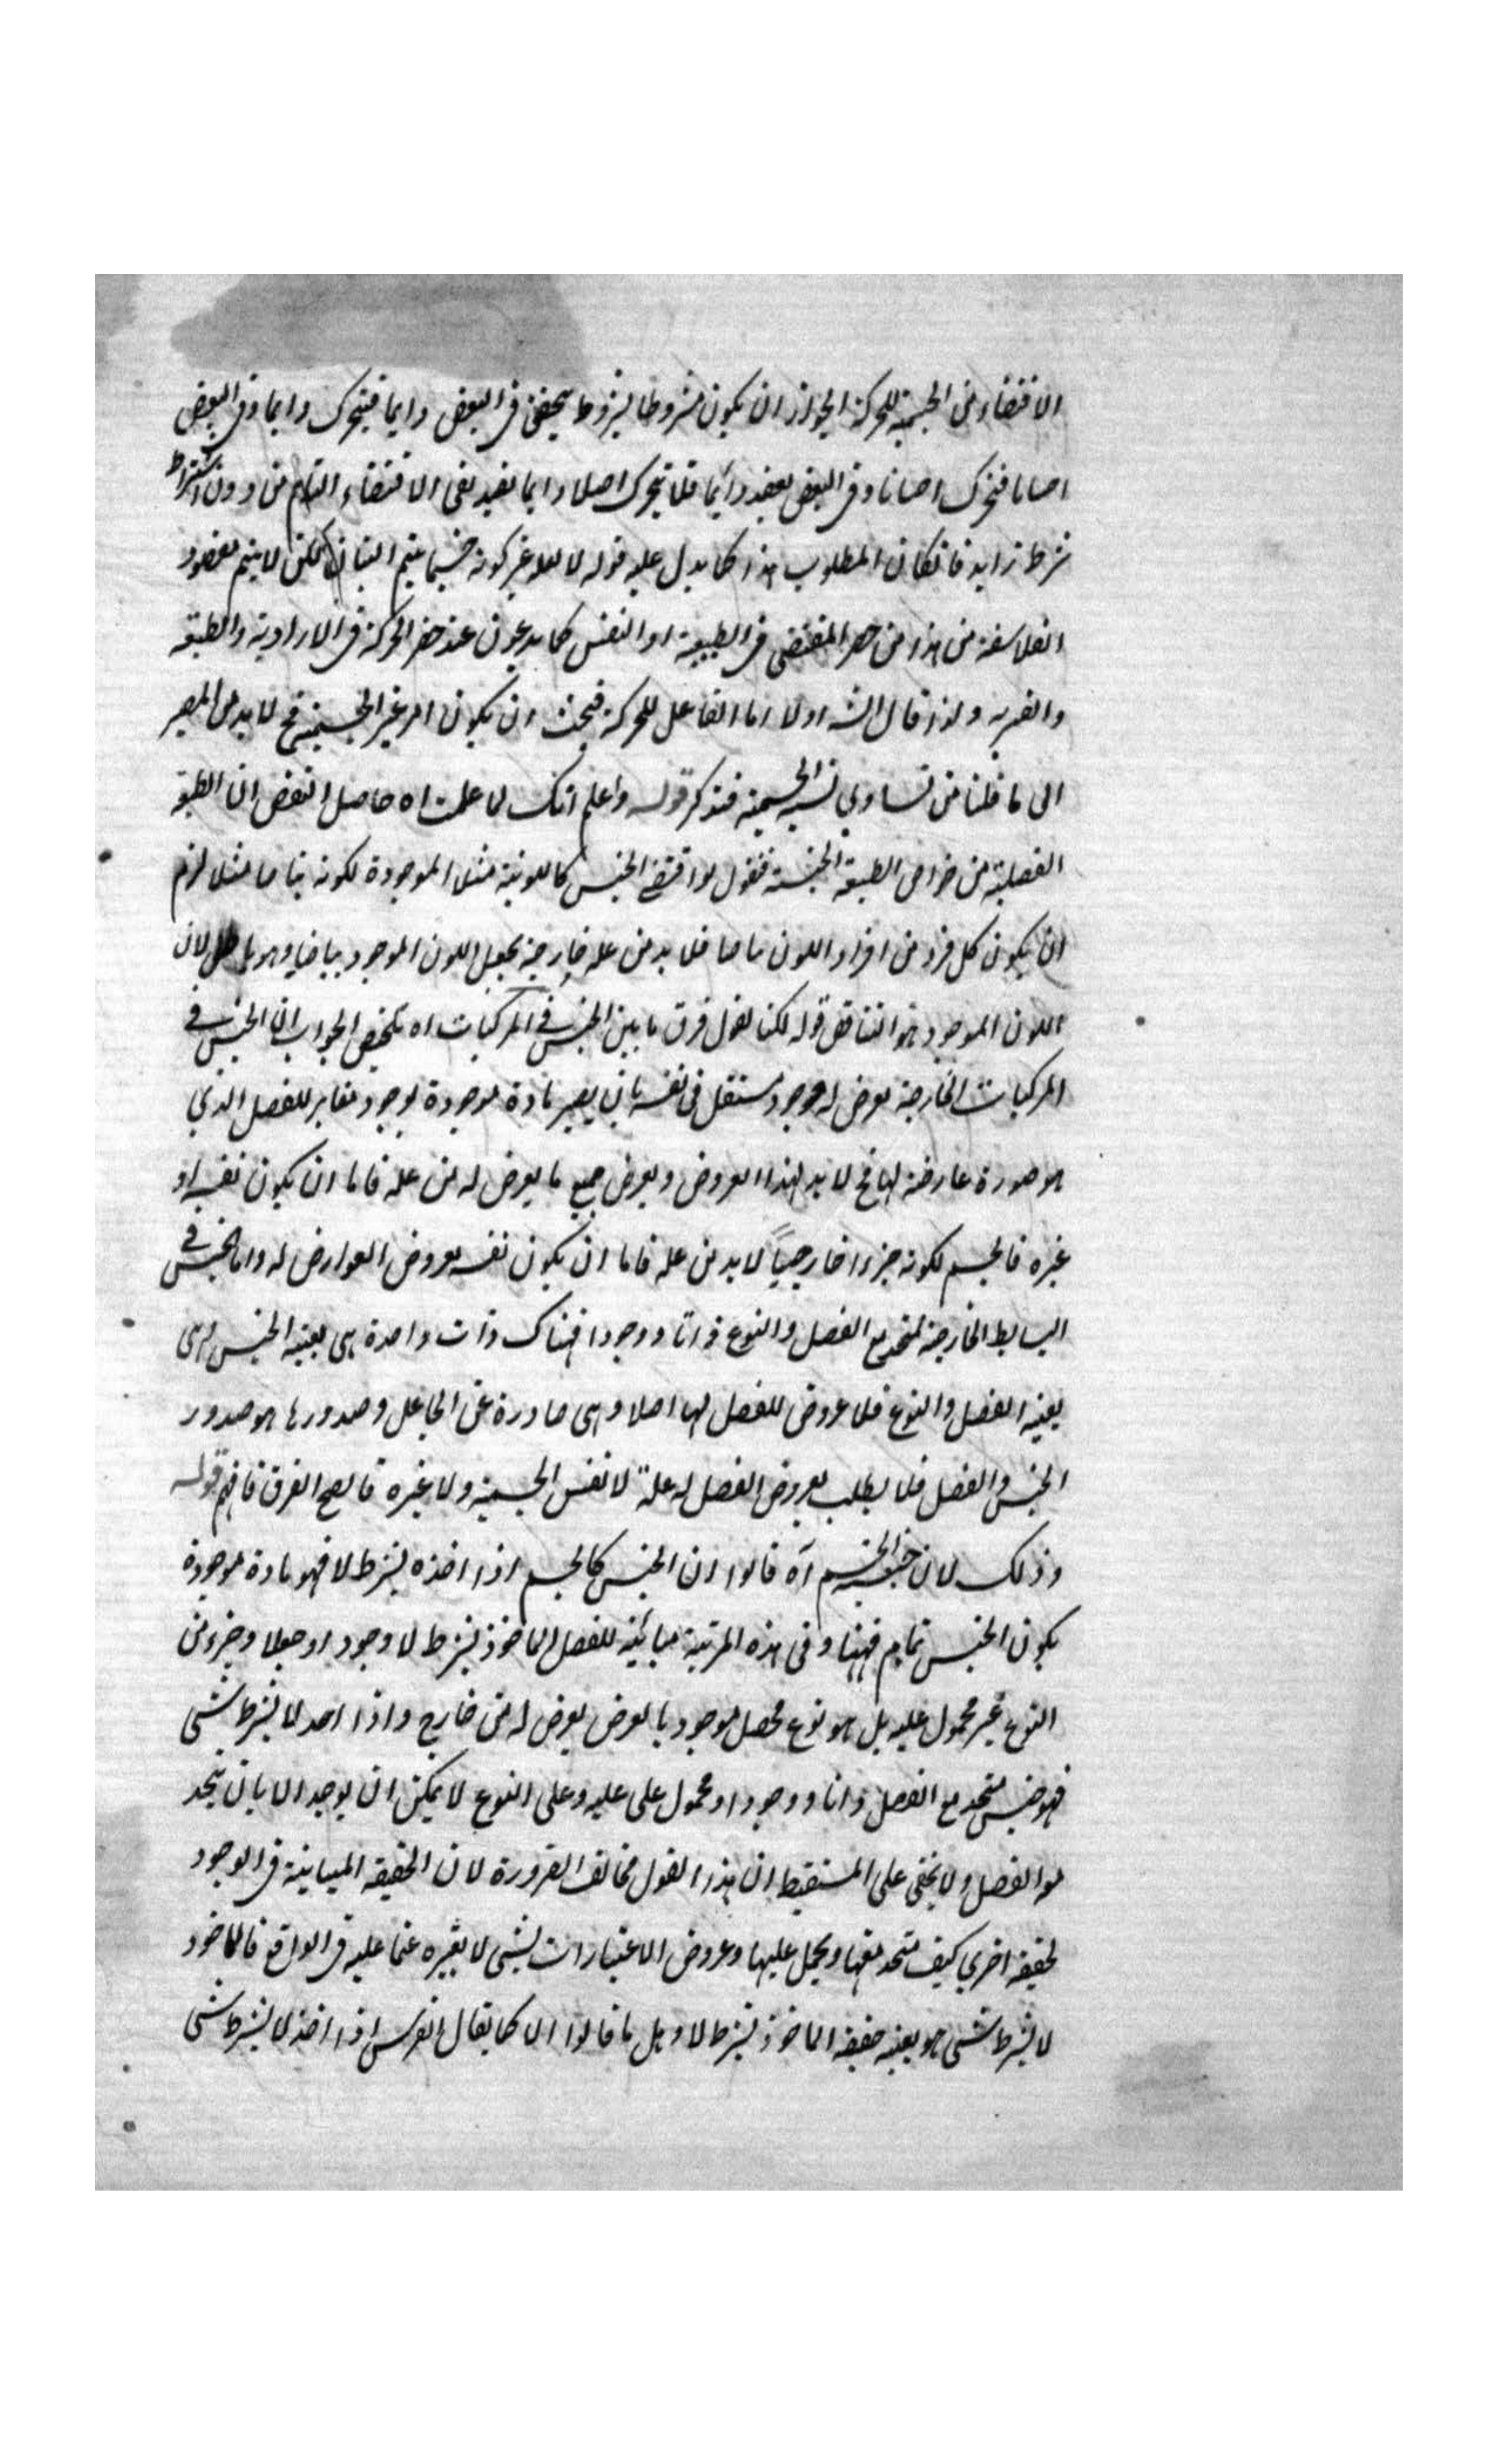 الاقتضاء من الجسمية للحركة لجواز ان يكون مشروطا بشروط يتحقق في البعض دايما فيتحرك دايما وفي البعض
احيانا فتحرك احيانا وفي البعض يفقد دائما فلا يتحرك اصلا دايما يفيد نفي الاقتضاء التام من دون اشتراط
شرط زايد فان كان المطلوب هذا كما يدل عليه قوله لا لعلة غير كونه جسما يتم البيان لكن لا يتم مقصود
الفلاسفة من هذا من حصر المقتضي في الطبيعة او النفس كما يدعون عند حصر الحركة في الارادية والطبيعية
والقسرية ولذا قال الش اولا اما الفاعل للحركة فيجب ان يكون امر غير الجسمية فح لا بد من المصير
الى ما قلنا من تساوي نسبة الجسمية فتذكر قوله واعلم انك لا علمت اه حاصل النقض ان الطبيعة
الفصلية من خواص الطبيعة الجنسية فنقول لو اقتضى الجنس كاللونية مثلا الموجودة لكونه بياضا مثلا لزم
ان يكون كل فرد من افراد اللون بياضا فلا بد من علة خارجية يجعل اللون الموجود بياضا وهو باطل لان
اللون الموجود هو التناقض قوله لكنا نقول فرق ما بين الجنس في المركبات اه تلخيص الجواب ان الجنس في
المركبات الخارجية يعرض له وجود مستقل في نفسه بان يصير مادة موجودة بوجود مغاير للفصل الذي
هو صورة عارضة لها فح لا بد لهذا العروض ولعروض جميع ما يعرض له من علة فاما ان يكون نفسه او
غيره فالجسم لكونه جزءا خارجيا لا بد من علة فاما ان يكون نفسه لعروض العوارض له واما الجنس في
البسايط الخارجية لمتحد مع الفصل والنوع ذاتا ووجودا فهناك ذات واحدة هي بعينه الجنس وهي
بعينه الفصل والنوع فلا عروض للفصل لها اصلا وهي صادرة عن الجاعل وصدورها هو صدور
الجنس والفصل فلا يطلب لعروض الفصل له علة لا نفس الجسمية ولا غيره فاتضح الفرق فافهم قوله
وذلك لان جنس الجسم آه قالوا ان الجنس كالجسم اذا اخذه بشرط لا فهو مادة موجودة
يكون الجنس تمام فيها وفي هذه المرتبة مباينة للفصل الماخوذ بشرط لا وجودا وجعلا وجزء من
النوع غير محمول عليه بل هو نوع محصل موجود بالعرض يعرض له من خارج واذا اخذ لا بشرط شي
فهو جنس متحد مع الفصل ذاتا ووجودا ومحمول على عليه وعلى النوع لا يمكن ان يوجد الا بان يتحد
هو الفصل ولا يخفى على المستيقظ ان هذا القول مخالف الضرورة لان الحقيقة المباينة في الوجود
لحقيقة اخرى كيف يتحد معها ويحمل عليها وعروض الاعتبارات لشي لا يغيره عما عليه في الواقع فالماخوذ
لا بشرط شي هو بعينه حقيقة الماخوذ بشرط لا وهل ما قالوا الا كما يقال الفرس اذا اخذ لا بشرط شي